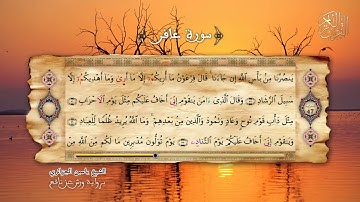 سورة غافر
يَنصُرُنَا مِنۢ بَأْسِ اِ۬للَّهِ إِن جَآءَنَا قَالَ فِرْعَوْنُ مَآ أُرِيكُمُۥٓ إِلَّا مَآ أَر۪ىٰ وَمَآ أَهْدِيكُمُۥٓ إِلَّا
سَبِيلَ اَ۬لرَّشَادِ وَقَالَ اَ۬لذِےٓ ءَامَنَ يَٰقَوْمِ إِنِّيَ أَخَافُ عَلَيْكُم مِّثْلَ يَوْمِ اِ۬لَاحْزَابِ
مِثْلَ دَأْبِ قَوْمِ نُوحٖ وَعَادٖ وَثَمُودَ وَالذِينَ مِنۢ بَعْدِهِمْ وَمَا اَ۬للَّهُ يُرِيدُ ظُلْماٗ لِّلْعِبَادِ
وَيَٰقَوْمِ إِنِّيَ أَخَافُ عَلَيْكُمْ يَوْمَ اَ۬لتَّنَادِۦ يَوْمَ تُوَلُّونَ مُدْبِرِينَ مَا لَكُم مِّنَ اَ۬للَّهِ مِنْ
الشيخ ياسين الجزائري
برواية ورش عن نافع